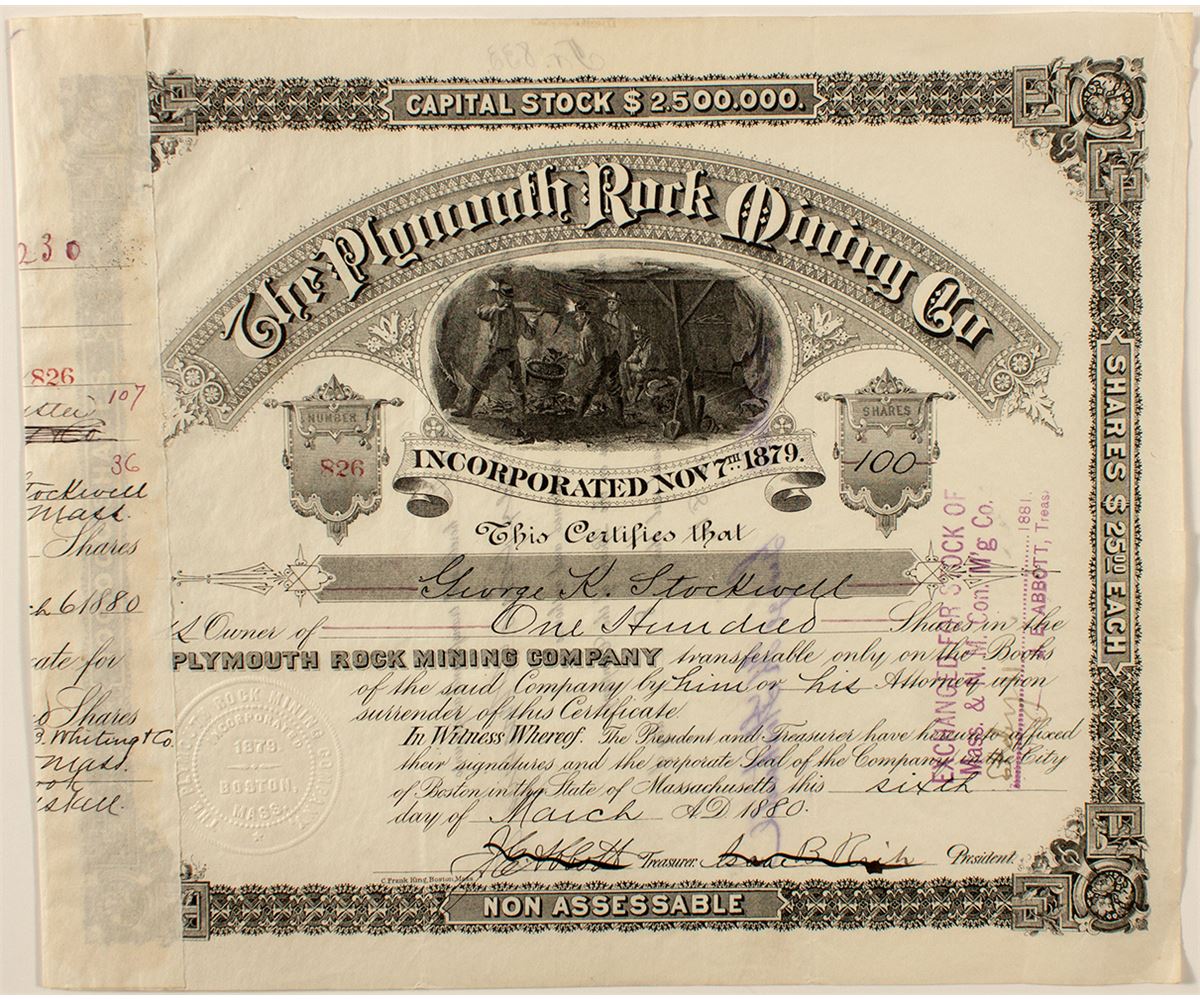 CAPITAL STOCK $ 2.500.000.
The Plymouth Rock Mining Co
NUMBER
826
SHARES
100
INCORPORATED NOV 7TH 1879.
This Certifies that
George K. Stockwell
is Owner of One Hundred Shares in the
PLYMOUTH ROCK MINING COMPANY transferable only on the Books
of the said Company by him or his Attorney upon
surrender of this Certificate.
In Witness Whereof. The President and Treasurer have hereunto affixed
their signatures and the corporate Seal of the Company in the City
of Boston, in the State of Massachusetts this sixth
day of March A.D. 1880.
J C Abbott Treasurer. Isaac B Rich President.
C. Frank King, Boston, Mass
NON ASSESSABLE
SHARES $ 25.00 EACH
EXCHANGED FOR STOCK OF
Mass. & N. M. Con. M'g Co.
1881.
ABBOTT, Treas
THE PLYMOUTH ROCK MINING COMPANY
INCORPORATED
1879.
BOSTON,
MASS.
230
826
107
36
tockwell
Mass.
Shares
ch 6 1880
cate for
Shares
B. Whiting & Co.
Mass.